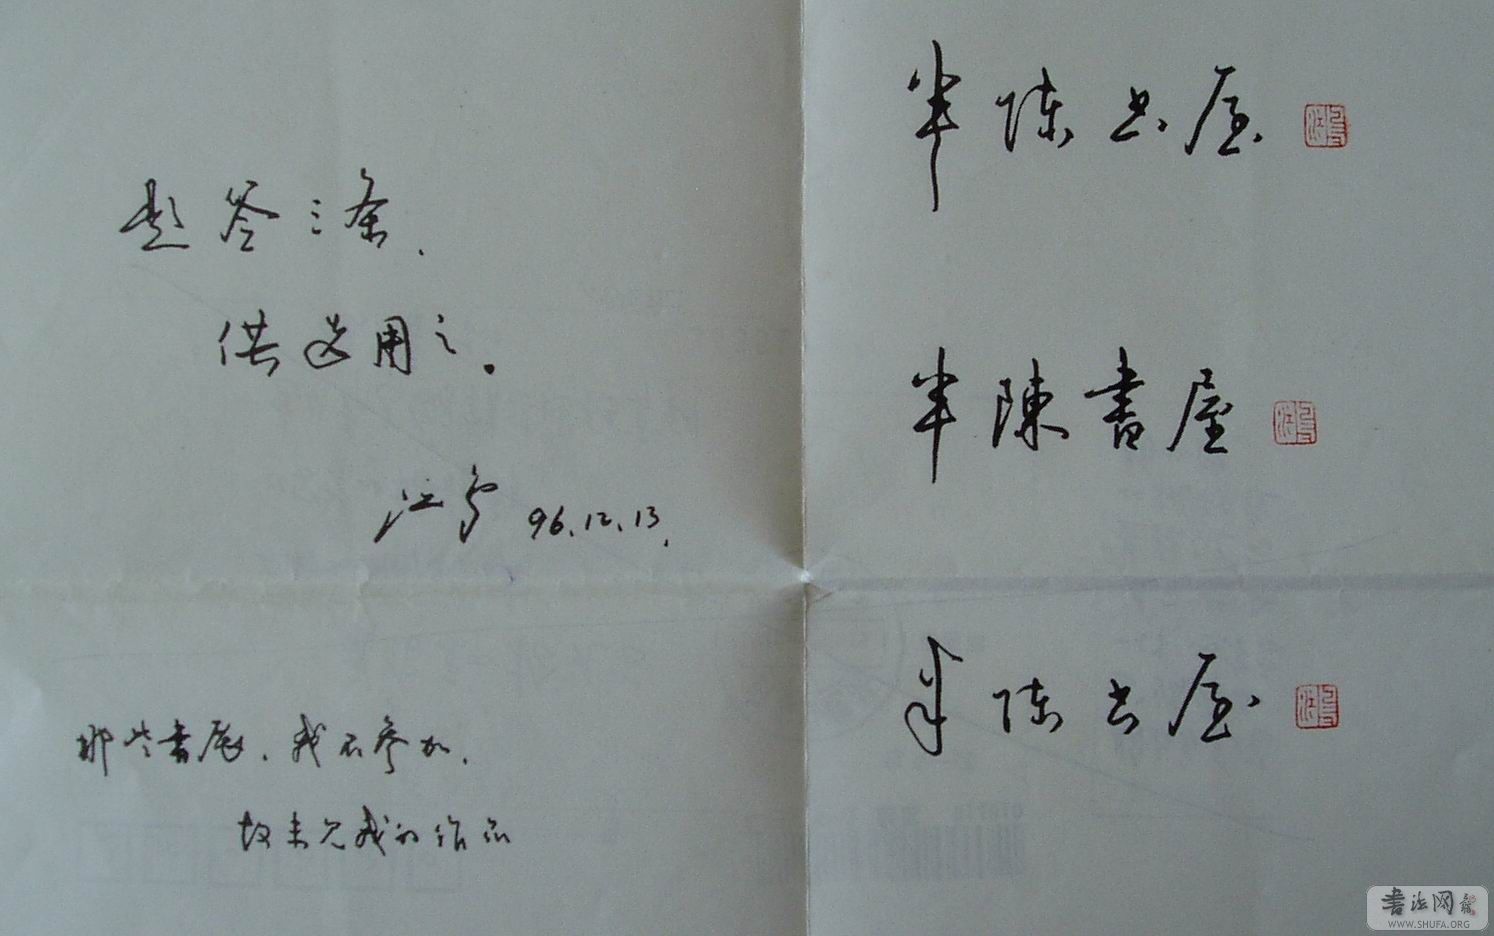 题签三条、
供选用之。
江鸟 96.12.13.
那些書展、我不参加、
故未见我的作品
半陈书屋
半陳書屋
半陈书屋
書法网
WWW.SHUFA.ORG